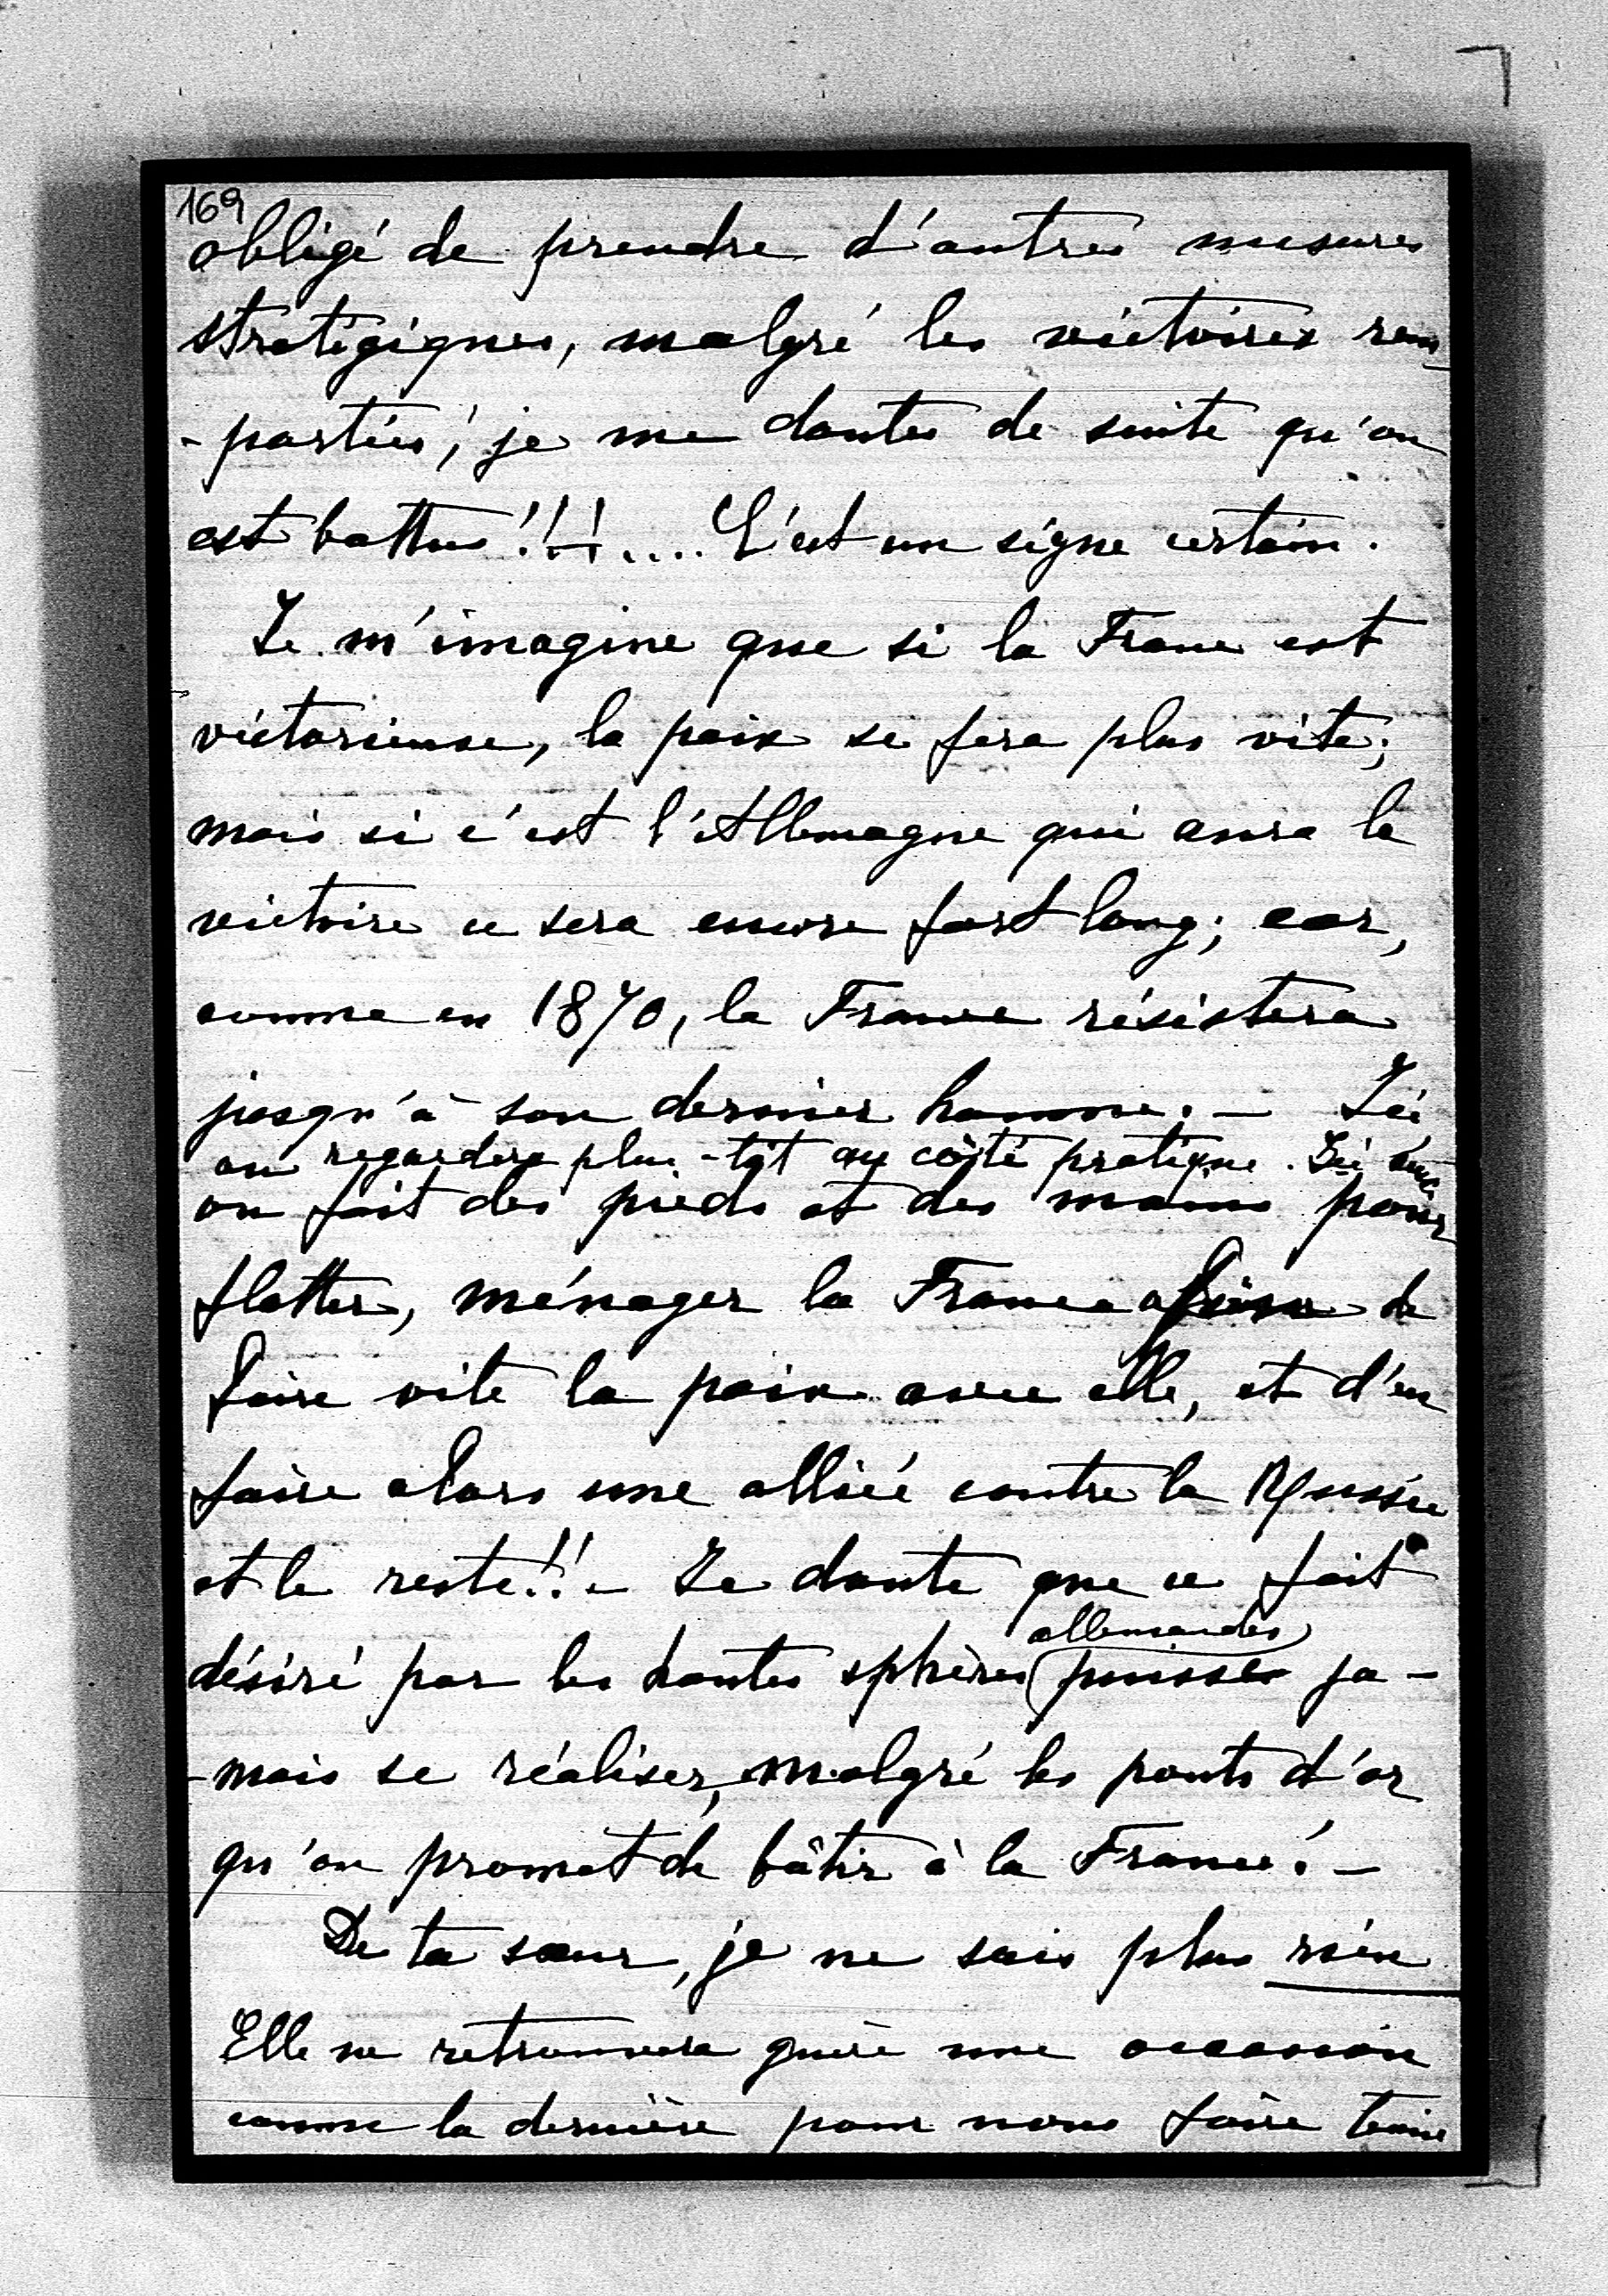 169
obligé de prendre d'autres mesures
stratégiques, malgré les victoires rem
-portées, je me doutes de suite qu'on
est battus!!!.... C'est un signe certain.
Je m'imagine que si la France est
victorieuse, la paix se fera plus vite;
mais si c'est l'Allemagne qui aura la
victoire ce sera encore fort long; car,
comme en 1870, la France résistera
jusqu'à son dernier homme. - Ici
on regardera plus-tôt au côté pratique. Ici
on fait des pieds et des mains pour
flatter, ménager la France de
faire vite la paix avec elle, et d'en
faire alors une alliée contre la Russie
et le reste!! - Je doute que ce fait
allemandes
désiré par les hautes sphères puisse ja-
-mais se réaliser, malgré les ponts d'or
qu'on promet de bâtir à la France! -
De ta sœur, je ne sais plus rien
Elle ne retrouvera guère une occasion
comme la dernière pour nous faire tenir